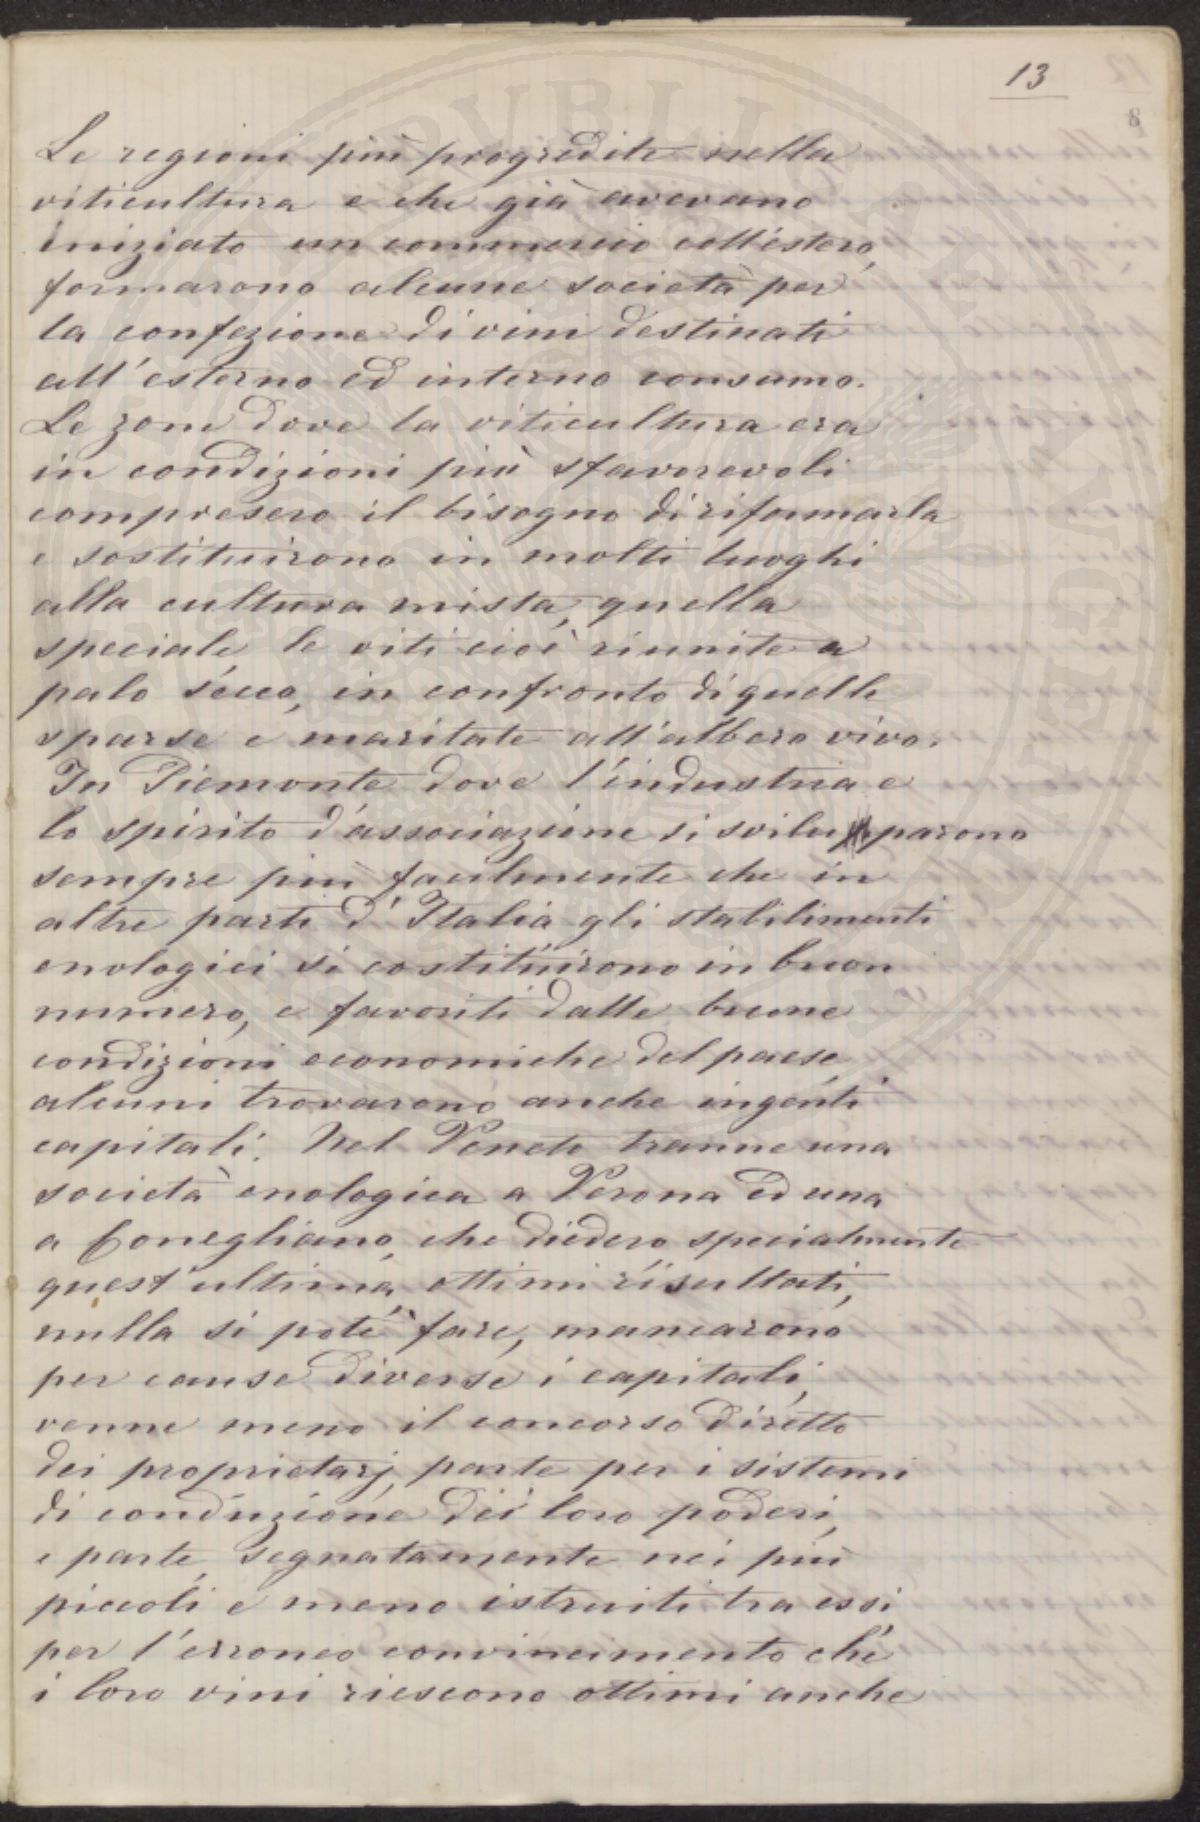 13
8
Le regioni più progredite nella
viticultura e che già avevano
iniziato un commercio coll'estero,
formarono alcune società per
la confezione di vini destinati
all'esterno ed interno consumo.
Le zone dove la viticultura era
in condizioni più sfavorevoli
compresero il bisogno di riformarla
e sostituirono in molti luoghi
alla cultura mista, quella
speciale, le viti cioè riunite a
palo secco, in confronto di quelle
sparse e maritate all'albero vivo.
In Piemonte dove l'industria e
lo spirito d'associazione si svilupparono
sempre più facilmente che in
altre parti d'Italia gli stabilimenti
enologici si costituirono in buon
numero, e favoriti dalle buone
condizioni economiche del paese,
alcuni trovarono anche ingenti
capitali. Nel Veneto tranne una
società enologica a Verona ed una
a Conegliano, che diedero specialmente
quest'ultima, ottimi risultati,
nulla si potè fare, mancarono
per cause diverse i capitali,
venne meno il concorso diretto
dei proprietarj, parte per i sistemi
di conduzione dei loro poderi,
e parte, segnatamente nei più
piccoli e meno istruiti tra essi
per l'erroneo convincimento che
i loro vini riescono ottimi anche